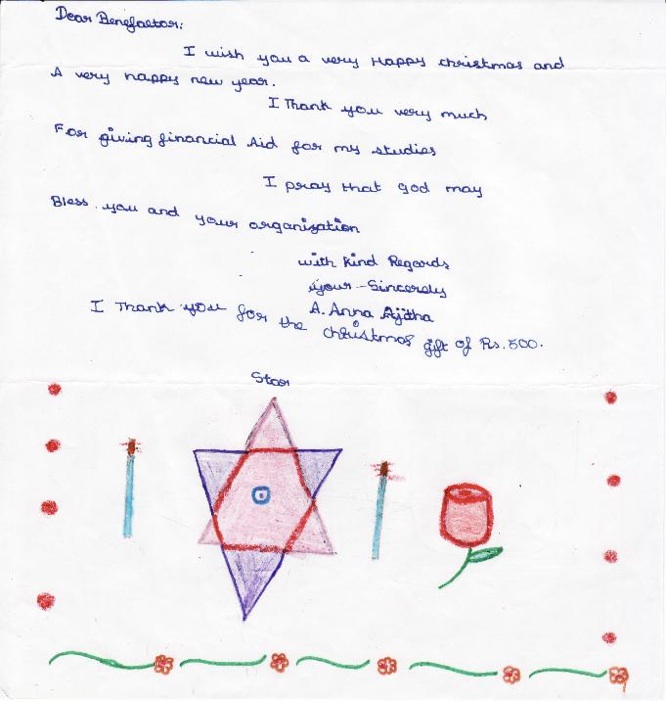 Dear Benefactor:
I wish you a very Happy christmas and
A very happy new year.
I Thank you very much
For giving financial Aid for my studies
I pray that god may
Bless you and your organisation
with kind Regards
your - Sincerely
A. Anna Ajitha
I Thank you for the christmas gift of Rs. 500.
Star